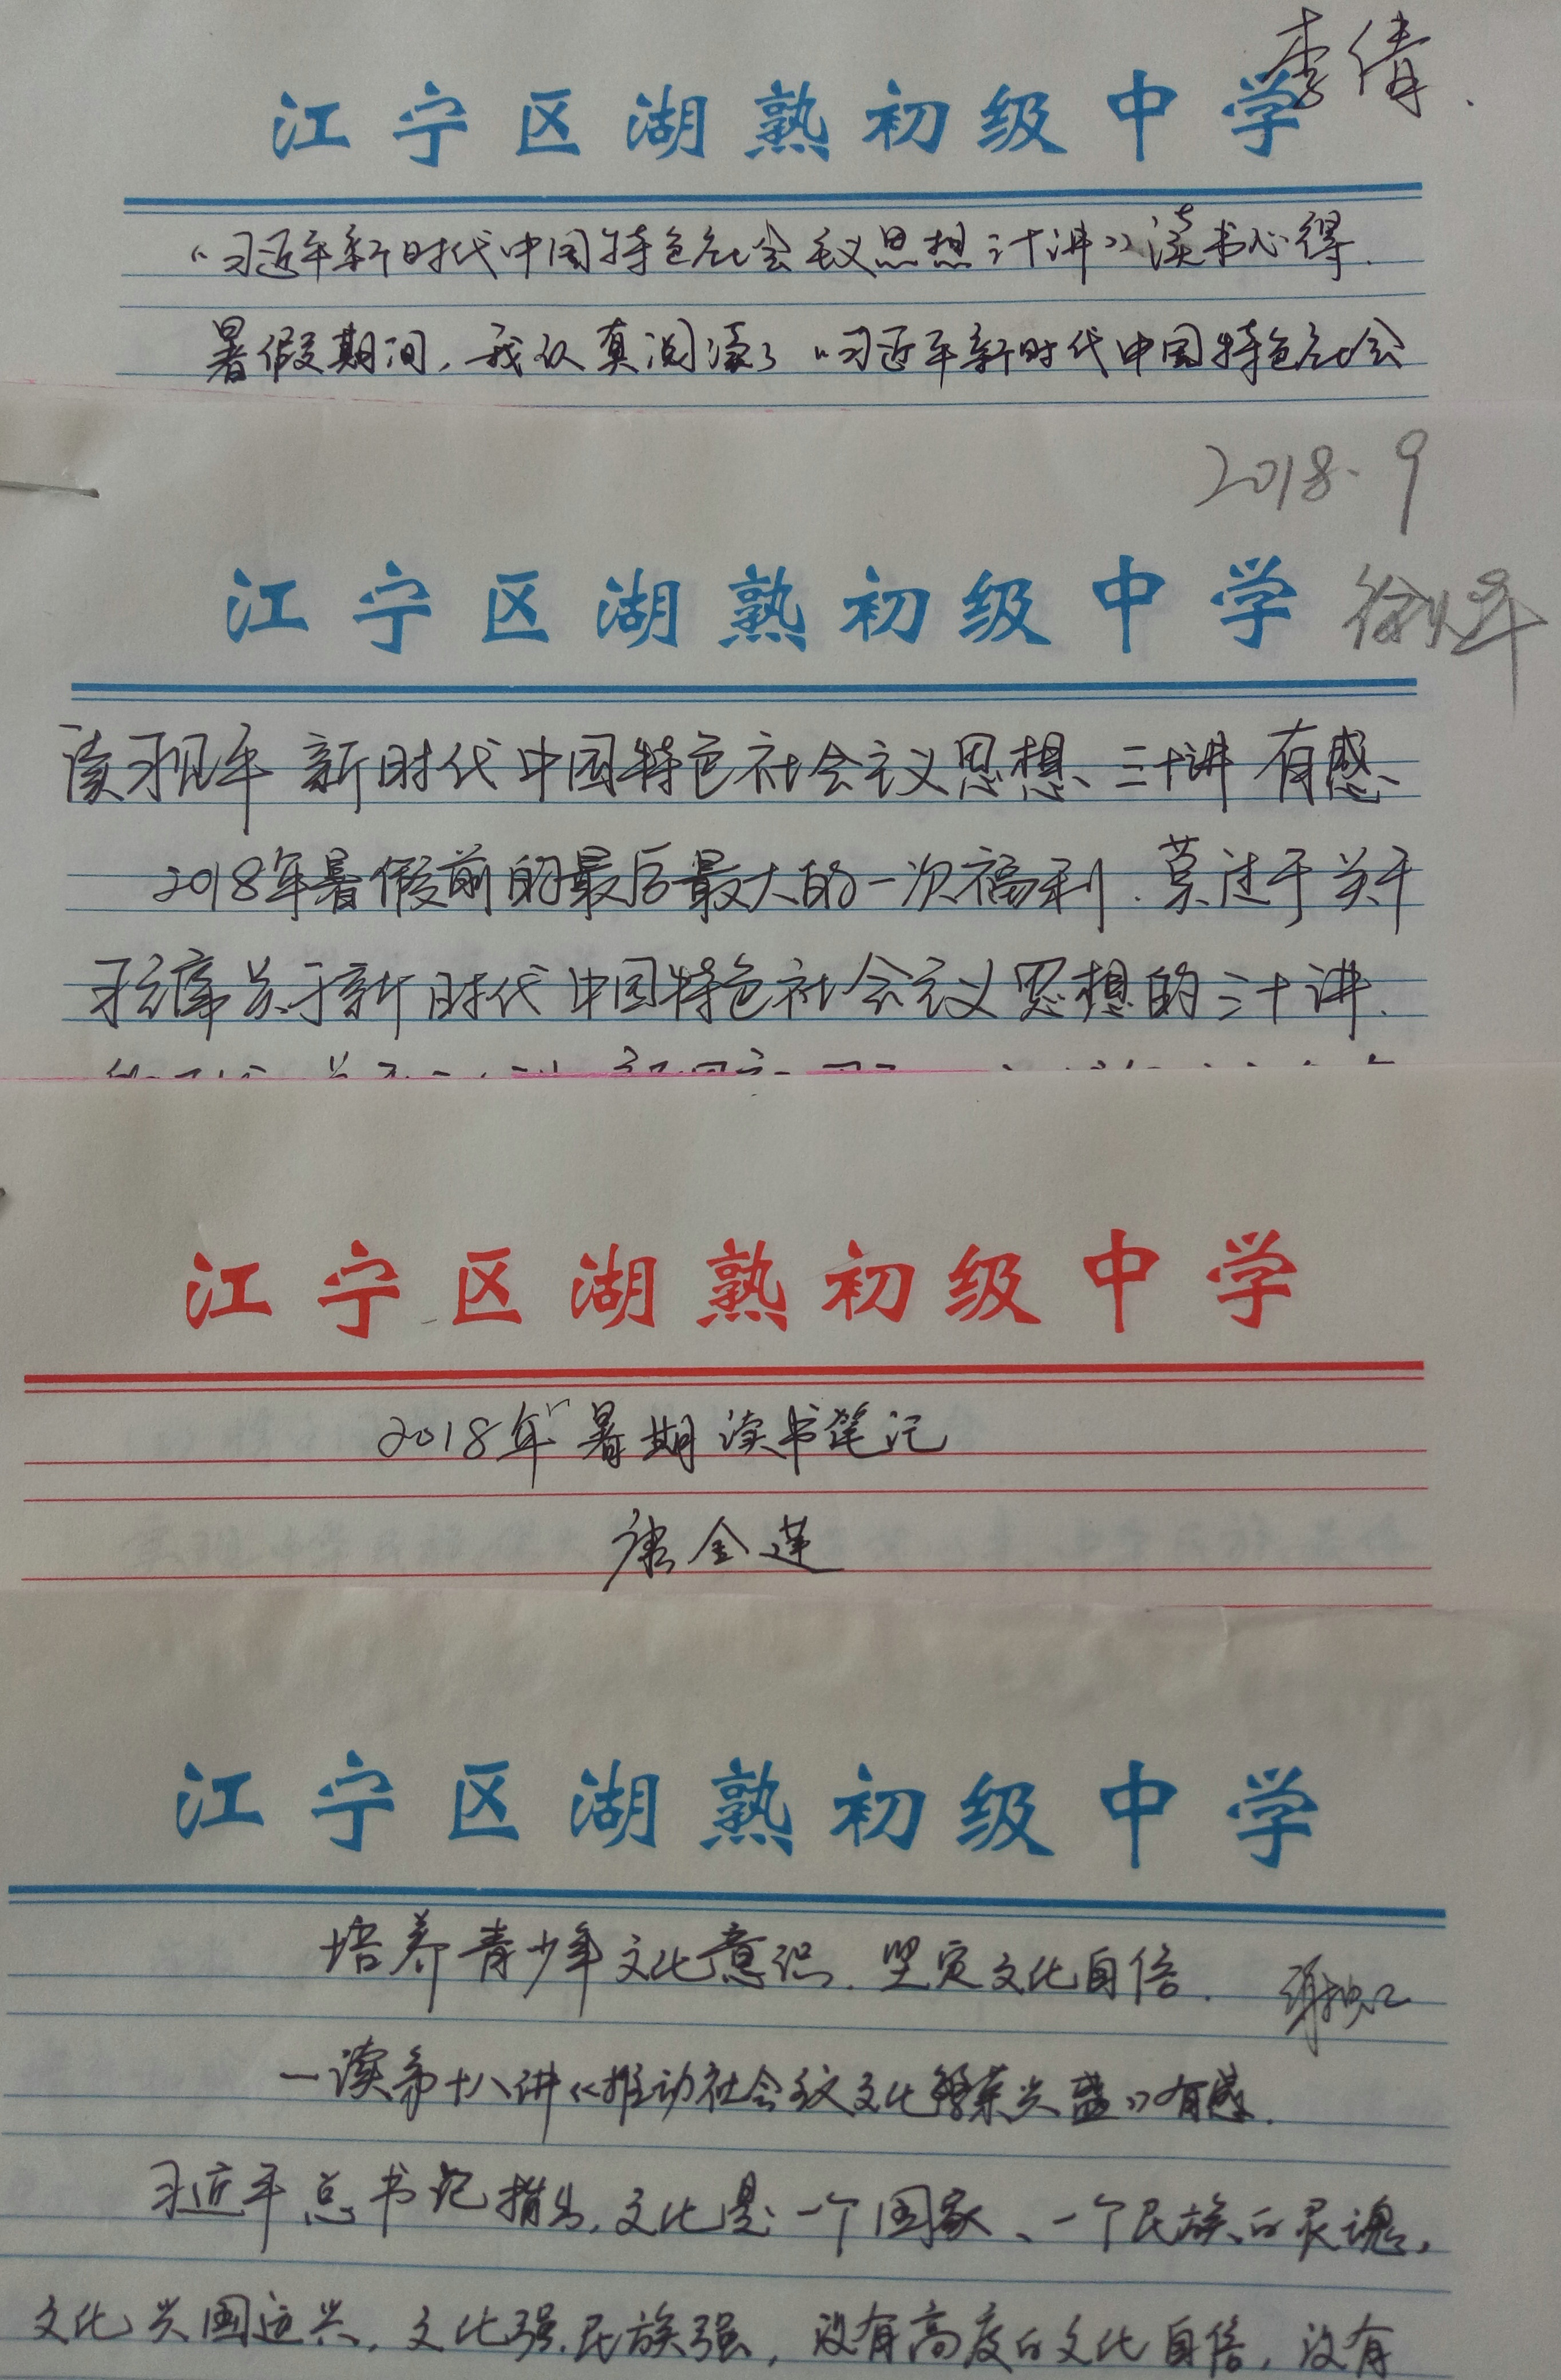 李倩.
江宁区湖熟初级中学
《习近平新时代中国特色社会主义思想三十讲》读书心得.
暑假期间,我认真阅读了《习近平新时代中国特色社会
2018.9
江宁区湖熟初级中学
读习近平 新时代中国特色社会主义思想、三十讲 有感、
2018年暑假前的最后最大的一次福利.莫过于关于
关于新时代中国特色社会主义思想的三十讲.
江宁区湖熟初级中学
2018年暑期读书笔记
唐金莲
江宁区湖熟初级中学
培养青少年文化意识.坚定文化自信.
一读第十八讲《推动社会主义文化繁荣兴盛》有感.
习近平总书记指出,文化是一个国家、一个民族的灵魂,
文化兴国运兴,文化强民族强,没有高度的文化自信,没有